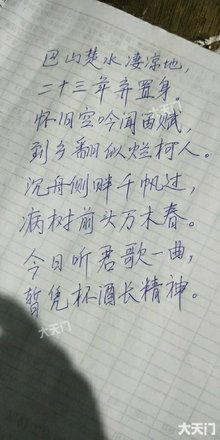 巴山楚水凄凉地，
二十三年弃置身
怀旧空吟闻笛赋，
到乡翻似烂柯人。
沉舟侧畔千帆过，
病树前头万木春。
今日听君歌一曲，
暂凭杯酒长精神。
大天门
大天门
大天门